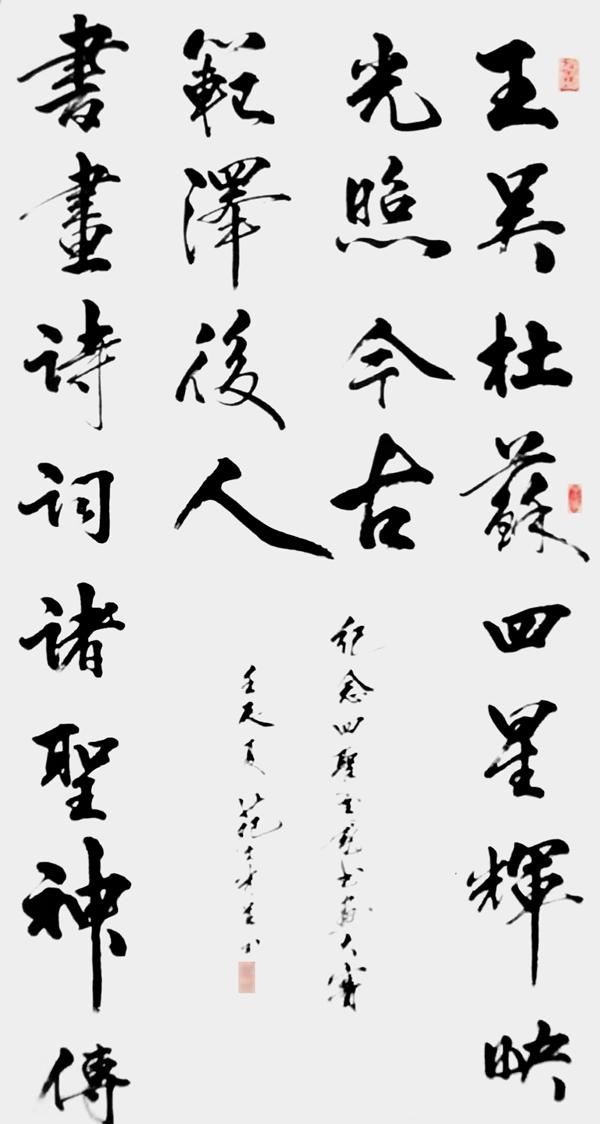 王吴杜蘇四星輝映
光照今古
書畫詩詞諸聖神傳
範澤後人
紀念四聖书画大賽
壬辰夏范书